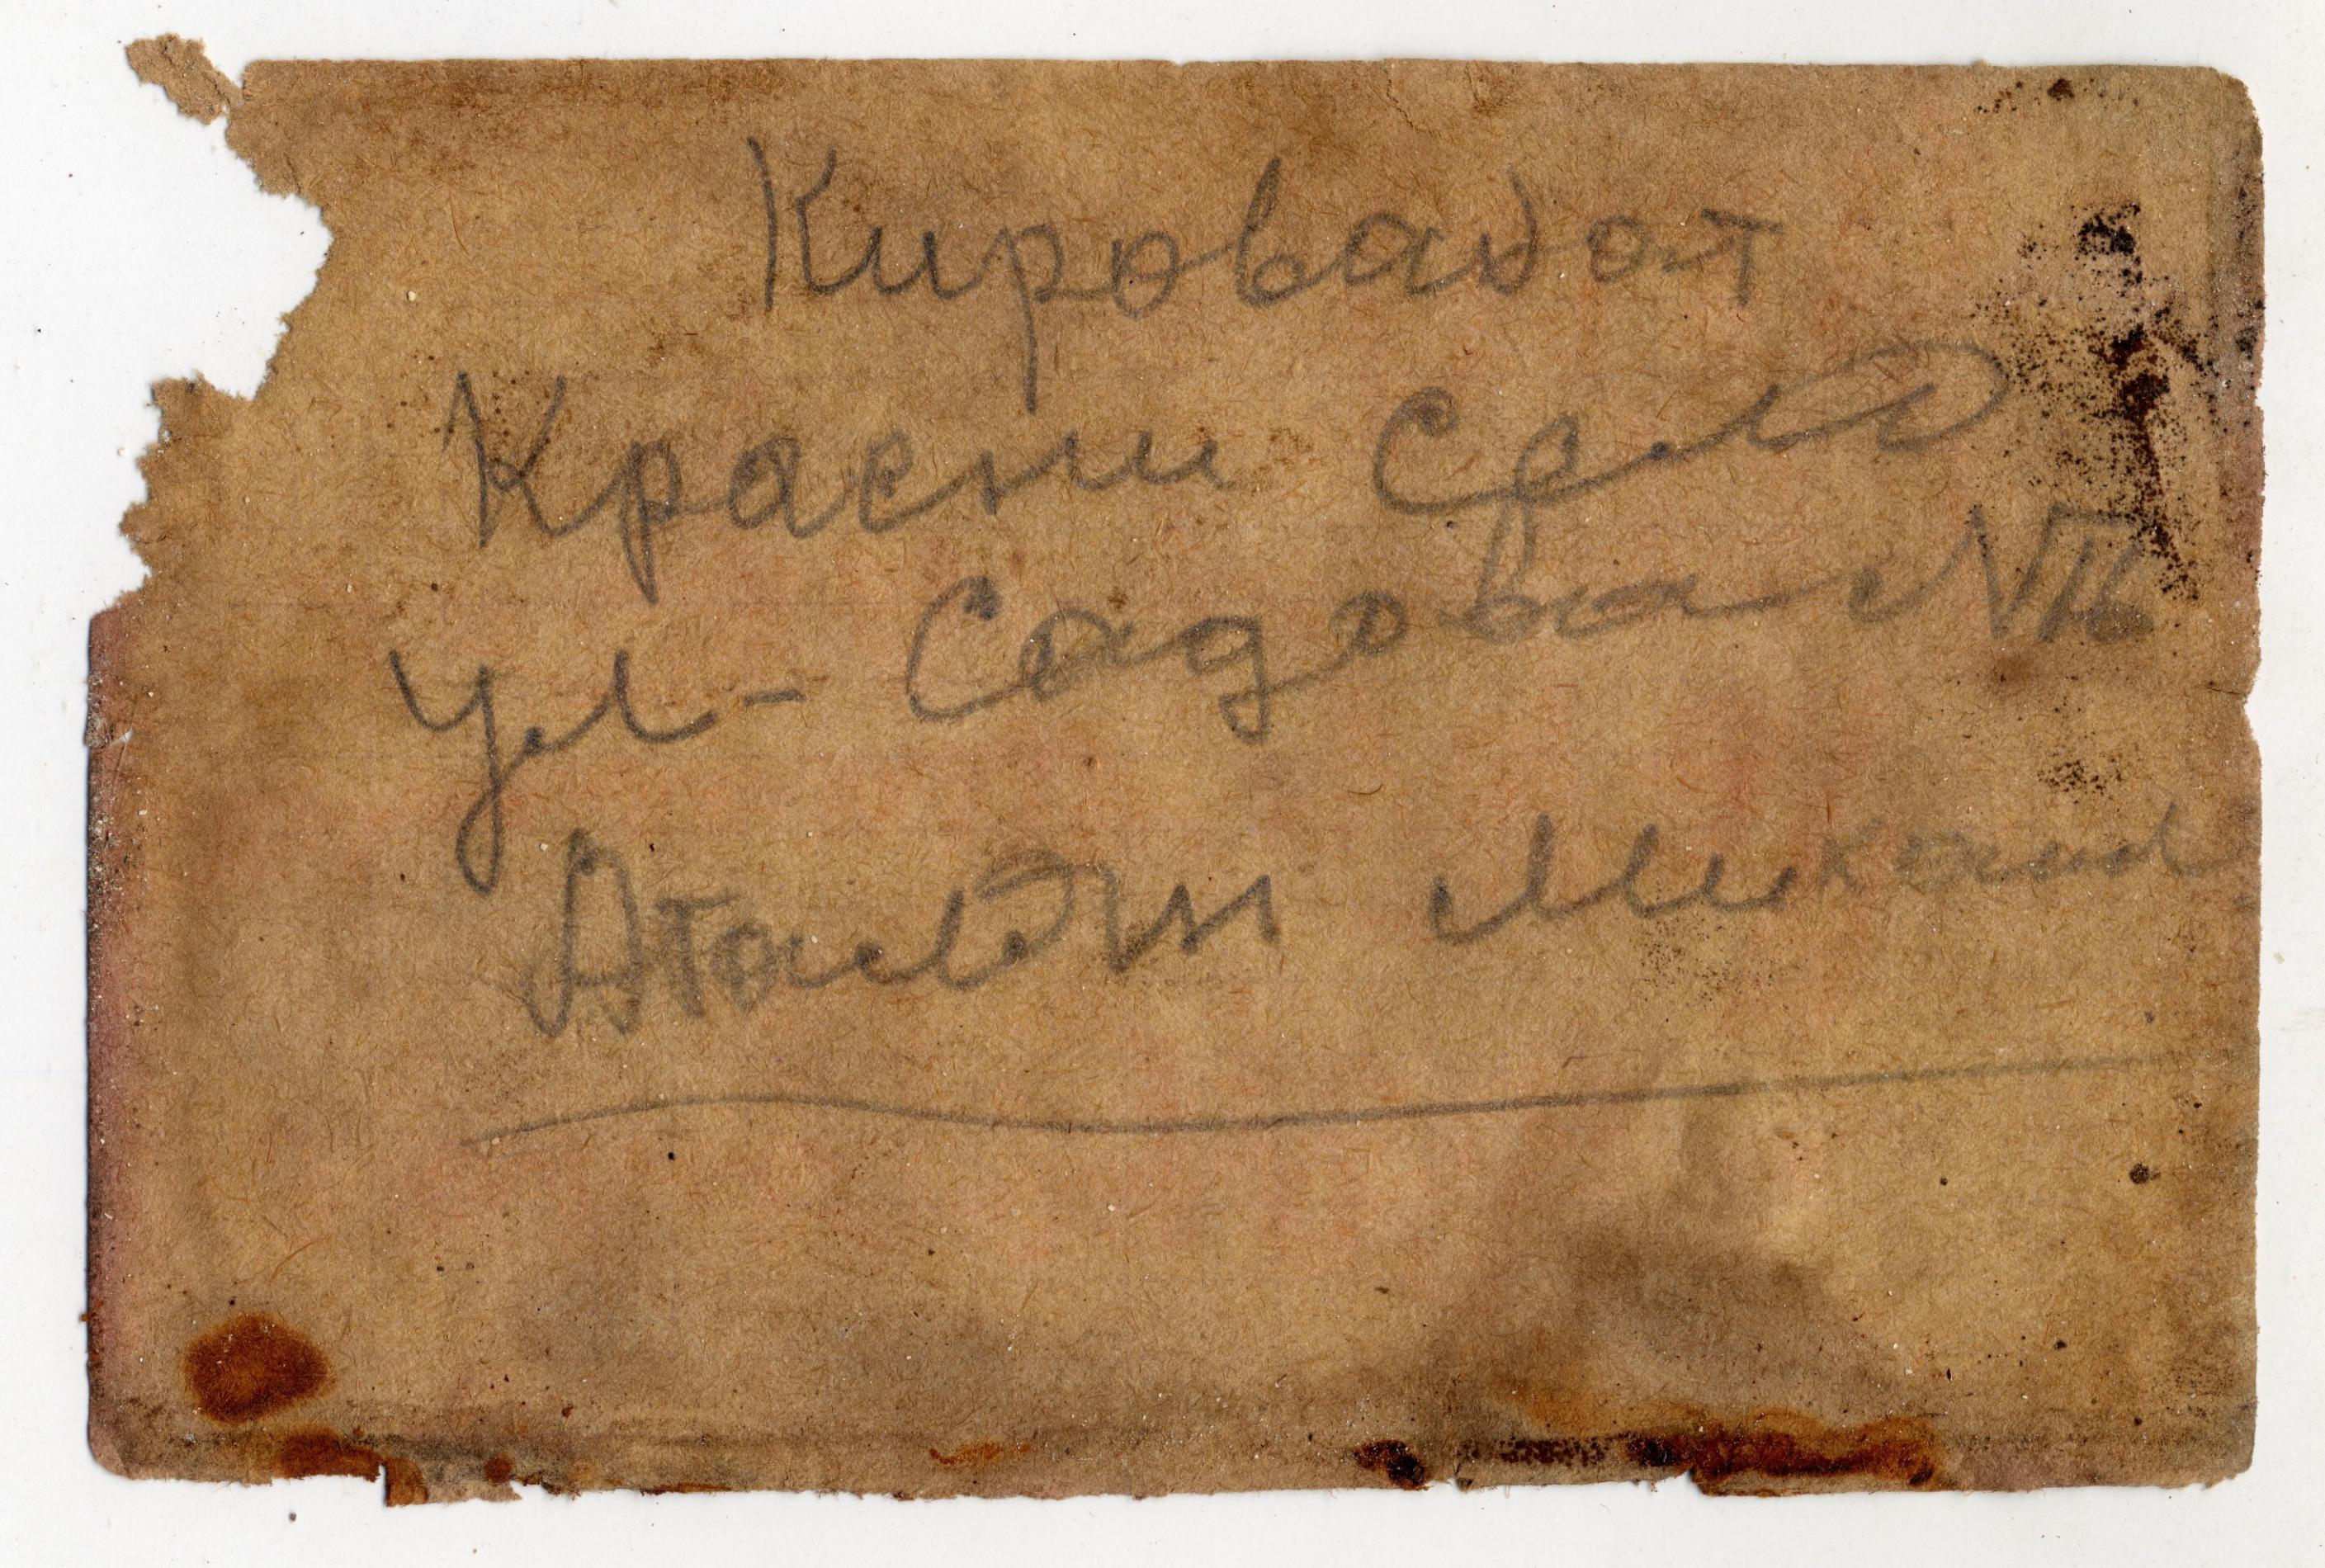 Кировабот
Красни Село
ул - Садовая № 16
Аталян Микаил